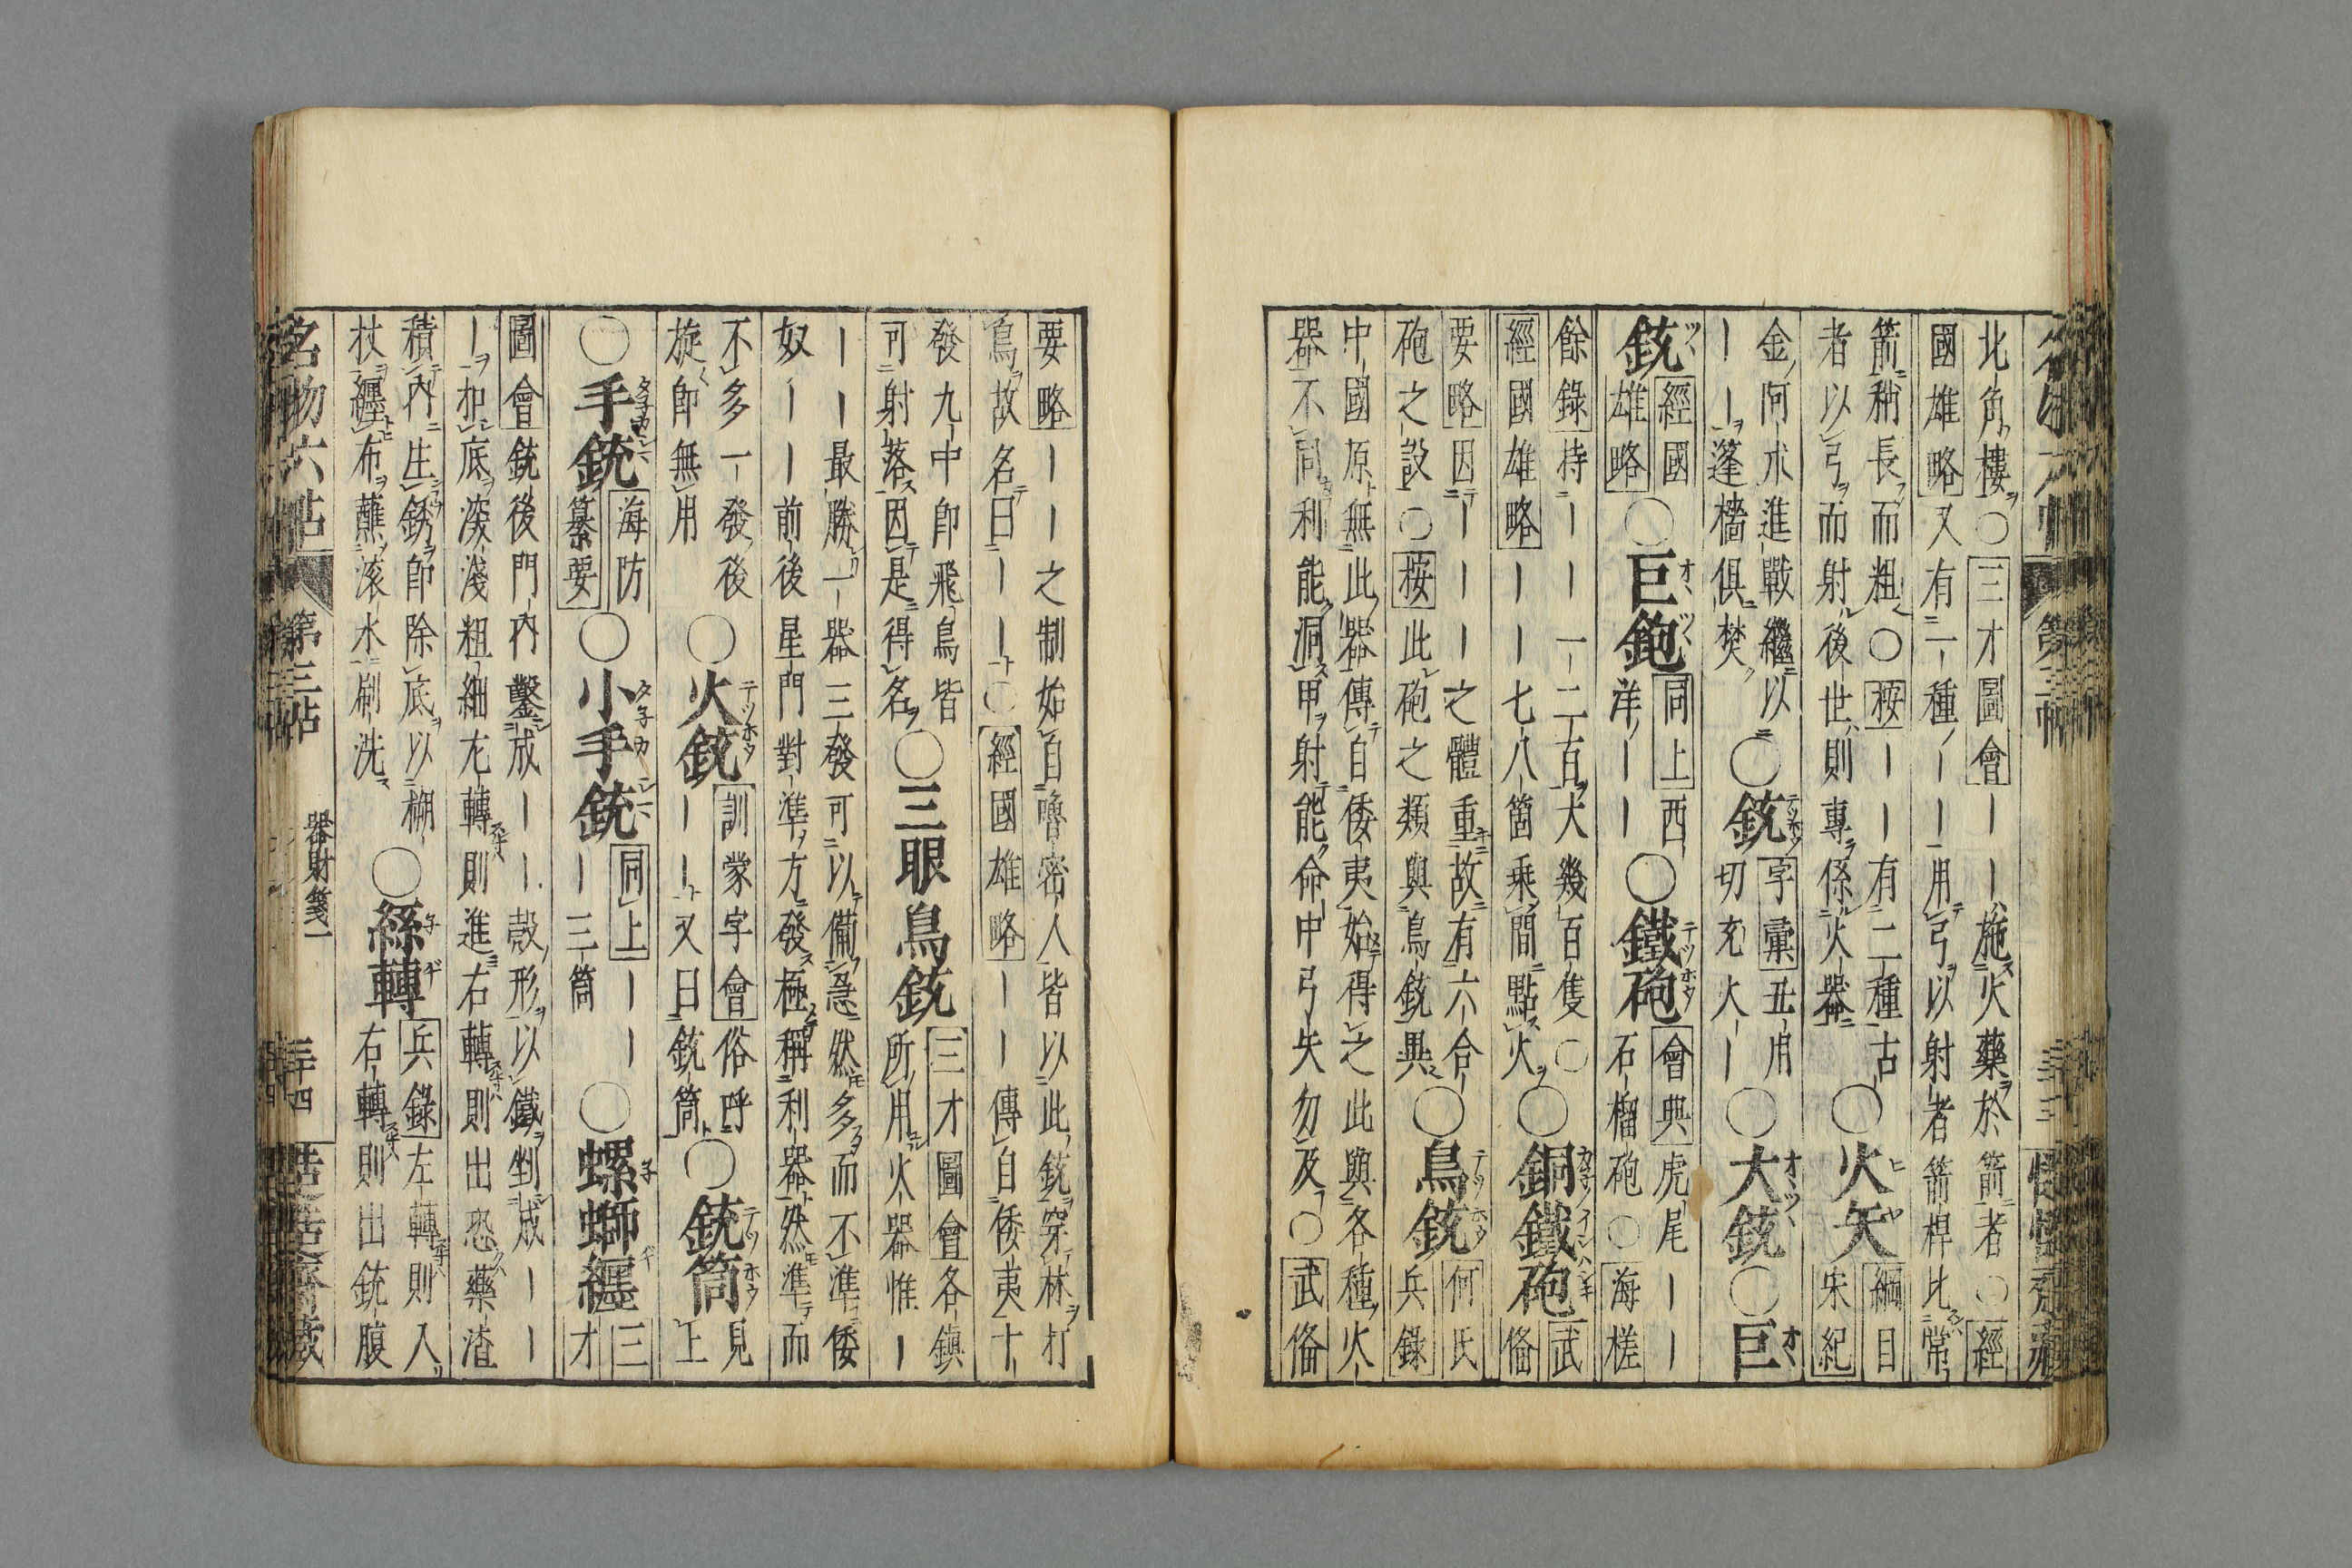 北角樓○三才圖會ーー施火藥於箭者○經
國雄略又有一種ーー用弓以射者箭桿比常
箭稍長而粗○桉ーー有二種古
者以弓而射後世則專係火器
○火矢
綱目
宋紀
金阿朮進戰繼以
ーー蓬檣俱焚
○銃
字彙丑用
切充大ー
○大銃○巨
銃
經國
雄略
○巨鉋
同上西
洋ーー
○鐵砲
會典虎尾ーー
石榴砲○海槎
餘錄持ーー一二百大幾百隻○
經國雄略ーー七八箇乘間點火
○銅鐵砲
武
俻
要略因ーーー之體重故有六合
砲之設○桉此砲之類與鳥銃異
○鳥銃
何氏
兵錄
中國原無此器傳自倭夷始得之此與各種火
器不同利能洞甲射能命中弓矢勿及○武俻
要略ーー之制始自嚕密人皆以此銃穿林打
鳥故名曰ーー○經國雄略ーー傳自倭夷十
發九中即飛鳥皆
可射落因是得名
○三眼鳥銃
三才圖會各鎮
所用火器惟ー
ーー最勝一器三發可以備急然多而不準倭
奴ーー前後星門對準方發極稱利器然準而
不多一發後
旋即無用
○火銃
訓蒙字會俗呼
ーー又曰銃筒
○銃筒
見
上
○手銃
海防
纂要
○小手銃
同上ーー
ー三筒
○螺螄纒
三
才
圖會銃後門內鑿成ーー殼形以鐵剉成ーー
ー如底深淺粗細尢轉則進右轉則出恐藥渣
積內生銹即除底以樃
杖纒布蘸滚水刷洗
○絲轉
兵錄左轉則入
右轉則出銃腹
名物六帖
第三帖
器財箋一
三十四